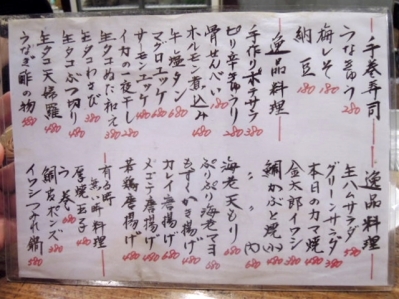 手巻寿司
うなきゅう 280
梅しそ 180
納豆 180
逸品料理
ピリ辛きゅうり 280
骨せんべい 180
ホルモン煮込み 480
牛塩タン 680
マグロユッケ 480
サーモンユッケ 480
イカの一夜干し 480
生タコぬた和え 380
生タコわさび 380
生タコぶつ切り 480
生タコ天婦羅 480
うなぎ酢の物 480
逸品料理
生ハムサラダ 580
グリーンサラダ 380
本日のカマ焼
金太郎イワシ
鯛かぶと焼(小)
〃 〃 (大)
海老天もり 680
ぷりぷり海老マヨ 680
もずくかき揚げ
カレイ唐揚げ
メゴチ唐揚げ
若鶏唐揚げ 480
有る時 無い時 料理
厚焼玉子
う巻
鯛皮ポンズ
イワシつみれ鍋